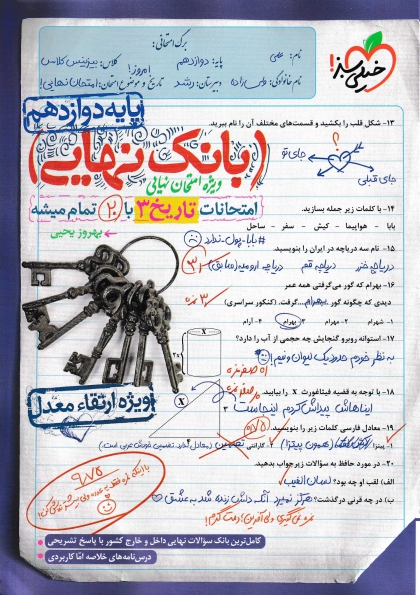 خیلی سبز!
برگ امتحانی:
نام:
پایه: دوازدهم
کلاس: بیزینس کلاس
نام خانوادگی:
دبیرستان: رشد
تاریخ و موضوع امتحان: امروز! (امتحان نهایی!)
پایه دوازدهم
۱۳- شکل قلب را بکشید و قسمت‌های مختلف آن را نام ببرید.
جای تو
جای قبلی
بانک نهایی
ویژه امتحان نهایی
امتحانات تاریخ ۳ با ۲۰ تمام میشه
بهروز یحیی
۱۴- با کلمات زیر جمله بسازید.
بابا - هواپیما - کیش - سفر - ساحل
#بابا-پول-ندارد
۱۵- نام سه دریاچه در ایران را بنویسید.
دریاچه خزر دریاچه قم دریاچه ارومیه (سابق)
۱۶- بهرام که گور می‌گرفتی همه عمر
دیدی که چگونه گور بهرام گرفت. (کنکور سراسری)
۱- شهرام ۲- مهرام ۳- بهرام ۴- آرام
۱۷- استوانه روبرو گنجایش چه حجمی از آب را دارد؟
به نظر خودم حدود یک لیوان و نیم!
۱۸- با توجه به قضیه فیثاغورث x را بیابید.
ایناهاش پیداش کردم اینجاست
ویژه ارتقاء معدل
۱۹- معادل فارسی کلمات زیر را بنویسید.
۱- پیتزا
۲- گارانتی
۲۰- در مورد حافظ به سؤالات زیر جواب بدهید.
الف) لقب او چه بود؟ لسان الغیب
ب) در چه قرنی درگذشت؟ هرگز نمیرد آنکه دلش زنده شد به عشق
کامل‌ترین بانک سؤالات نهایی داخل و خارج کشور با پاسخ تشریحی
درس‌نامه‌های خلاصه اما کاربردی